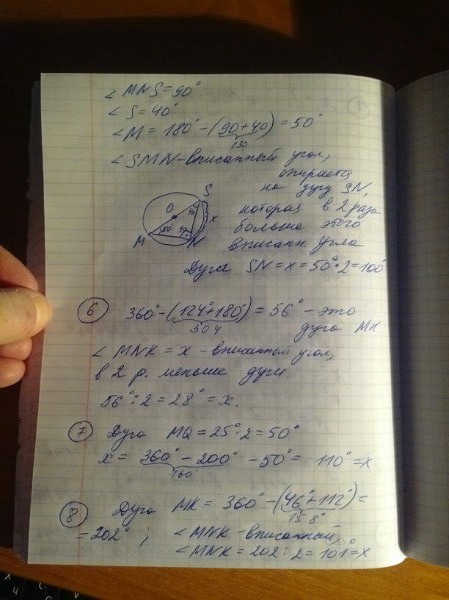 ∠ MNS = 90°
∠ S = 40°
∠ M = 180° - (90 + 40) = 50°
130
∠ SMN - вписанный угол,
опирается
на дугу SN,
которая в 2 раза
больше этого
вписанн угла
S
O
40
x
50°
90°
M
N
Дуга SN = x = 50° · 2 = 100°
6
360° - (124° + 180°) = 56° - это
304
дуга MK
∠ MNK = x - вписанный угол,
в 2 р. меньше дуги
56° : 2 = 28° = x.
7
Дуга MQ = 25° · 2 = 50°
x = 360° - 200° - 50° = 110° = x
160
8
Дуга MK = 360° - (46° + 112°) =
158°
= 202° ; ∠ MNK - вписанный,
∠ MNK = 202 : 2 = 101° = x